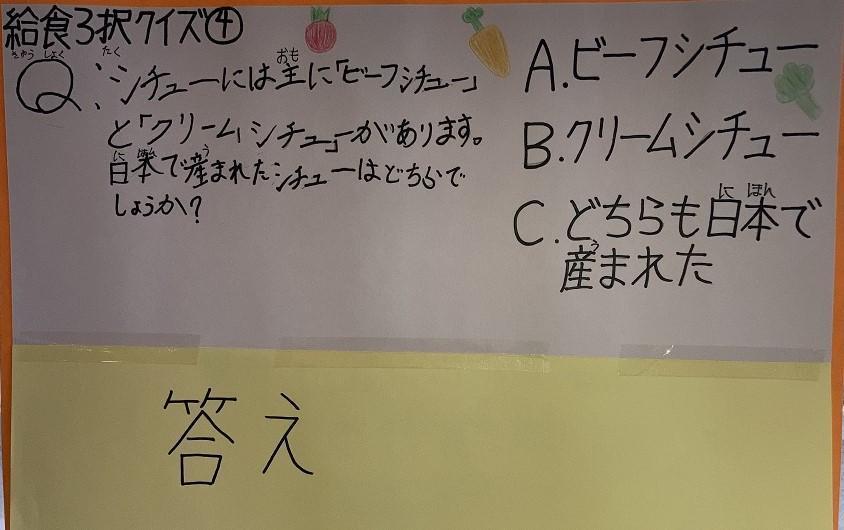 給食3択クイズ④
きゅうしょく たく
Q. シチューには主に「ビーフシチュー」
おも
と「クリームシチュー」があります。
日本で産まれたシチューはどちらで
にほん う
しょうか?
A.ビーフシチュー
B.クリームシチュー
C.どちらも日本で
にほん
産まれた
う
答え